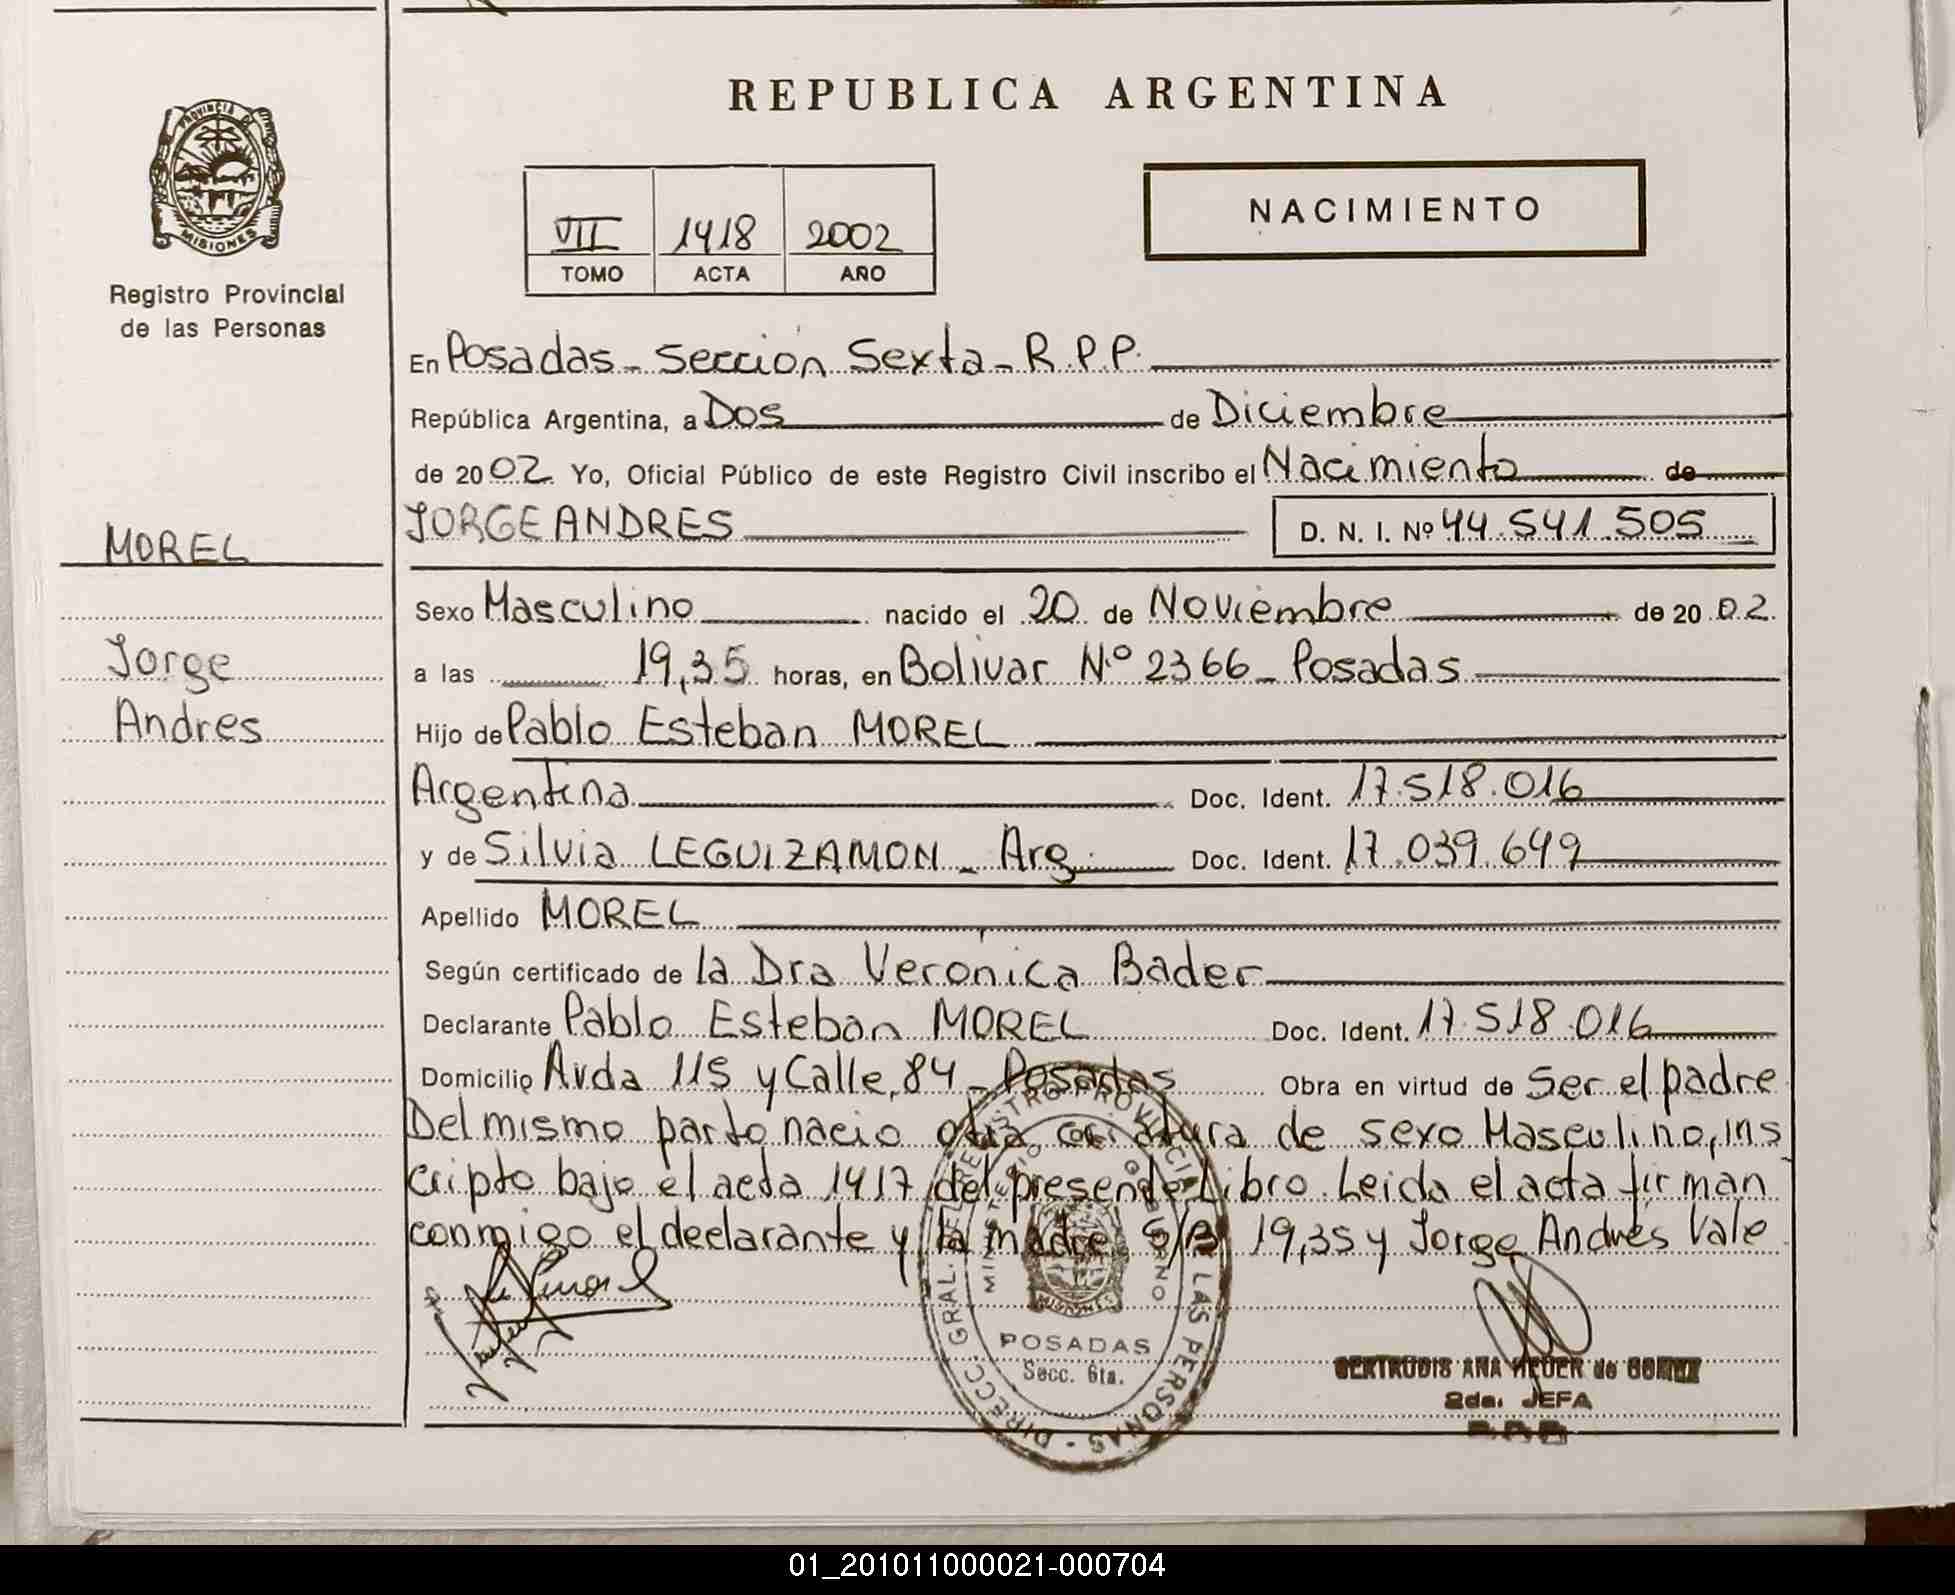 REPUBLICA ARGENTINA
PROVINCIA DE
MISIONES
Registro Provincial
de las Personas
VII 1418 2002
TOMO ACTA AÑO
NACIMIENTO
En Posadas - Sección Sexta - R.P.P.
República Argentina, a Dos de Diciembre
de 2002. Yo, Oficial Público de este Registro Civil inscribo el Nacimiento de
JORGE ANDRES D. N. I. Nº 44.541.505
MOREL
Jorge
Andres
Sexo Masculino nacido el 20 de Noviembre de 2002.
a las 19,35 horas, en Bolivar Nº 2366 - Posadas
Hijo de Pablo Esteban MOREL
Argentina Doc. Ident. 17.518.016
y de Silvia LEGUIZAMON - Arg. Doc. Ident. 17.039.649
Apellido MOREL
Según certificado de la Dra Veronica Bader
Declarante Pablo Esteban MOREL Doc. Ident. 17.518.016
Domicilio Avda 115 y Calle 84 - Posadas Obra en virtud de Ser el padre
Del mismo parto nacio otra criatura de sexo Masculino, ins
cripto bajo el acta 1417 del presente Libro. Leida el acta firman
conmigo el declarante y la madre S/B 19,35 y Jorge Andrés Vale
DIRECC. GRAL. DEL REGISTRO PROVINCIAL DE LAS PERSONAS -
MINISTERIO GOBIERNO
MISIONES
POSADAS
Secc. 6ta.
GERTRUDIS ANA HEUER de GOMEZ
2da. JEFA
01_201011000021-000704